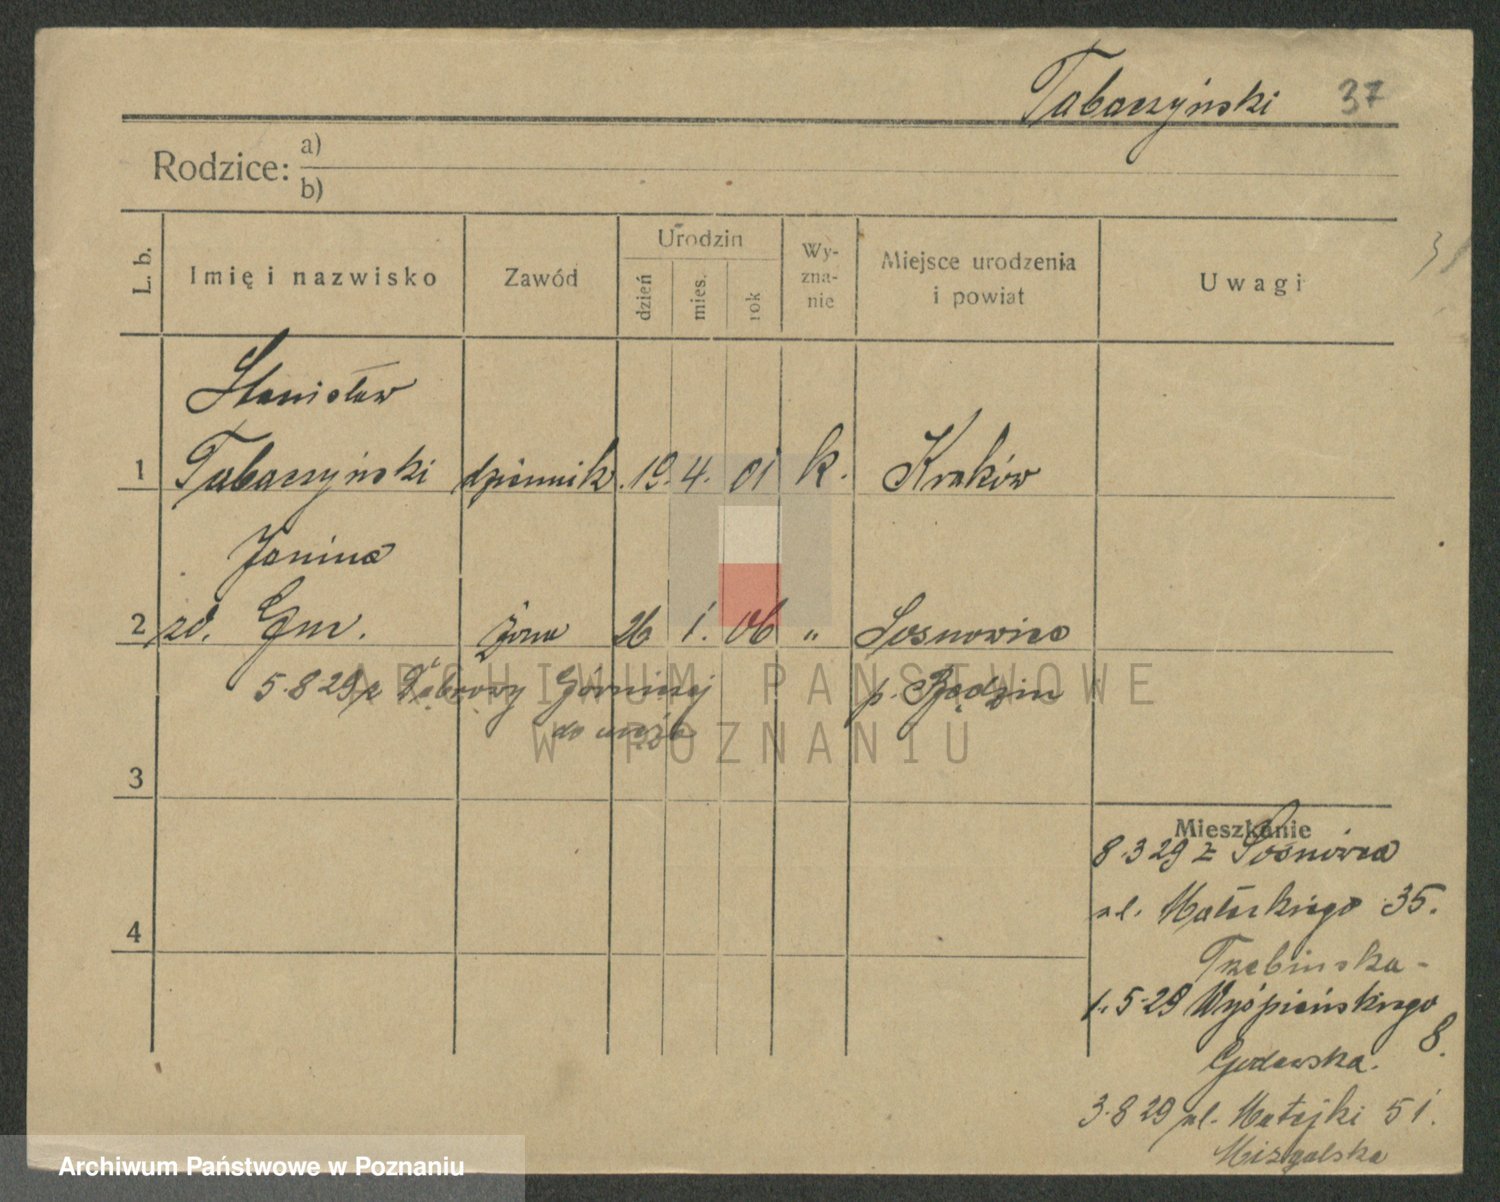 Tabaczyński 37
Rodzice: a)
b)
L. b. Imię i nazwisko Zawód Urodzin dzień mies. rok Wy-zna-nie Miejsce urodzenia i powiat Uwagi
Stanisław
1 Tabaczyński dziennik. 19. 4. 01 k. Kraków
Janina
2 zd. Gm. żona 26 1. 06 " Sosnowiec
5.8 29 z Dąbrowy Górniczej p. Będzin
do męża
3
4
Mieszkanie
8.3 29 z Sosnowca
ul. 35.
Trebinska -
1.5-29 Wyśpiańskiego 8.
3.8 29 ul. Matejki 51.
Mizgalska
ARCHIWUM PAŃSTWOWE
W POZNANIU
Archiwum Państwowe w Poznaniu